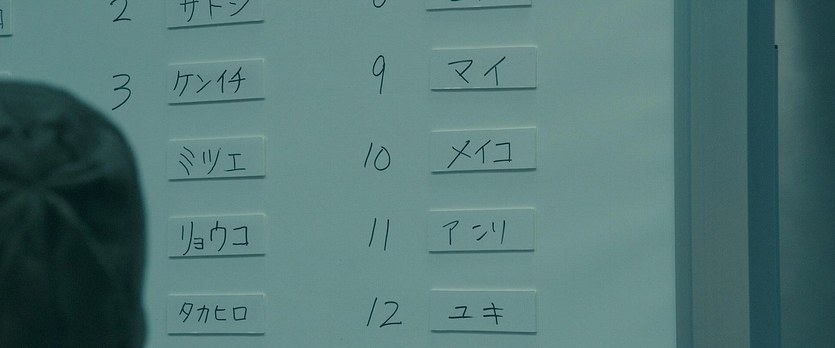 2 サトシ
3 ケンイチ
ミツエ
リョウコ
タカヒロ
9 マイ
10 メイコ
11 アンリ
12 ユキ